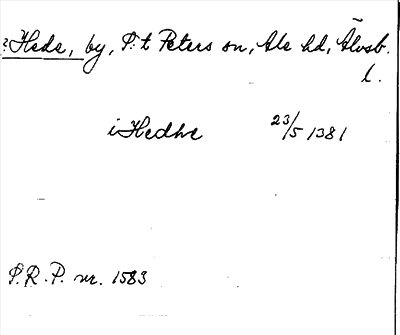 ?Hede, by, S:t Peters sn, Ale hd, Älvsb.
l.
i Hedhe 23/5 1381
S.R.P. nr. 1583